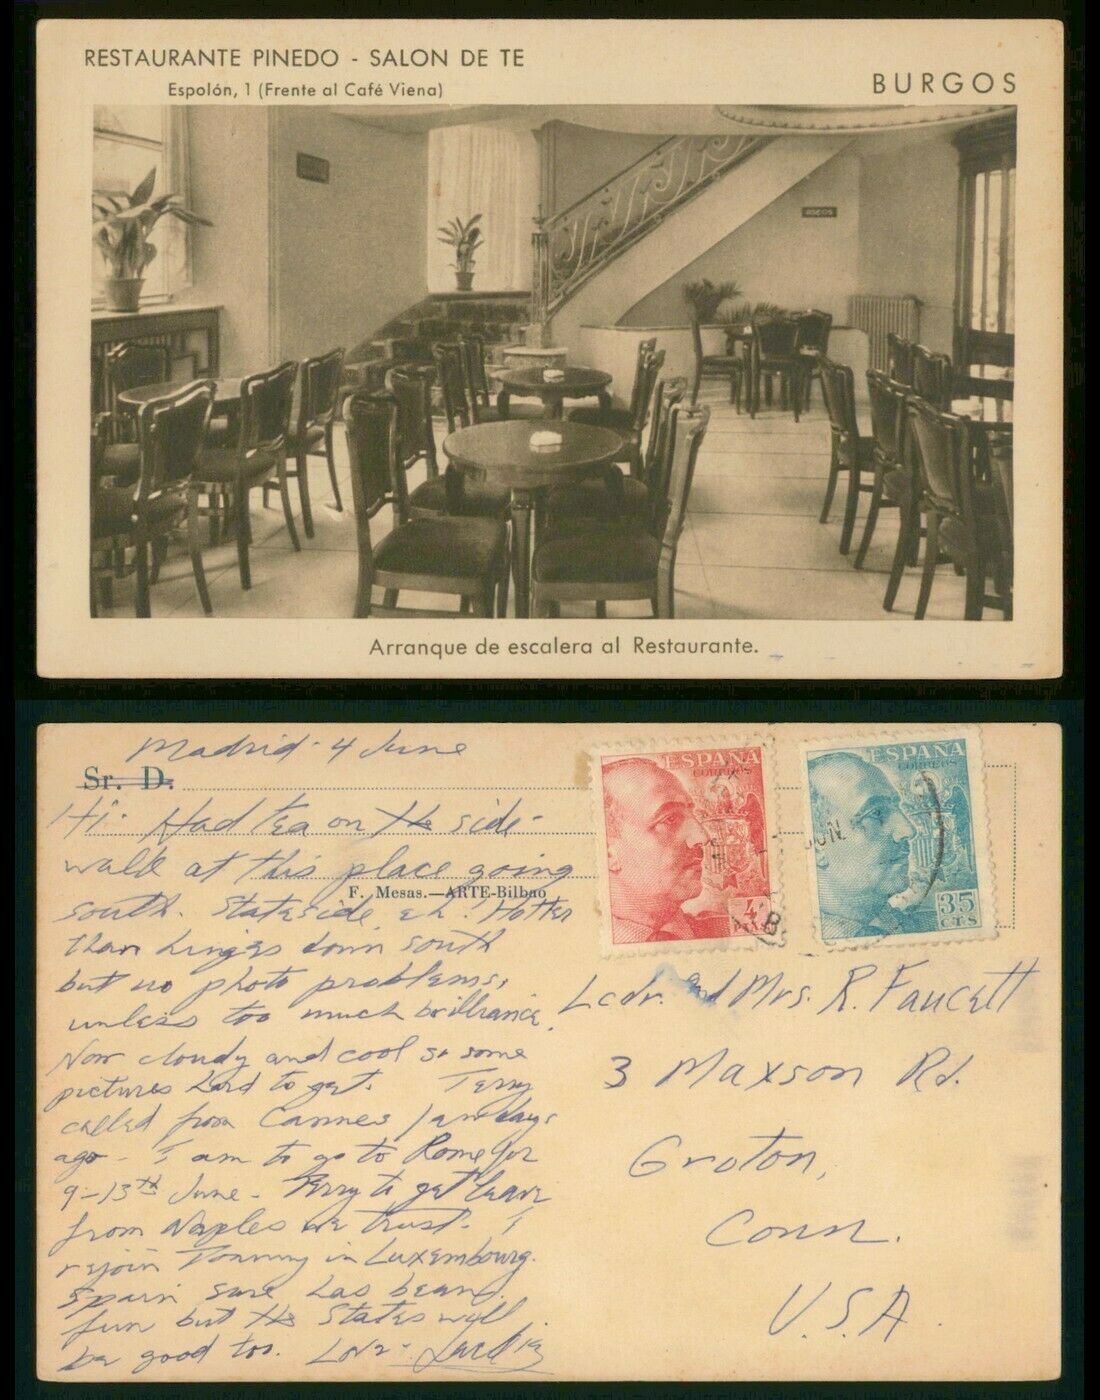 RESTAURANTE PINEDO - SALON DE TE
Espolón, 1 (Frente al Café Viena)
BURGOS
Arranque de escalera al Restaurante.
Madrid - 4 June
Sr. D.
Hi. Had tea on the side-
walk at this place going
F. Mesas.—ARTE-Bilbao
south. Stateside eh! Hotter
than hinges down south
but no photo problems,
unless too much brilliance.
Now cloudy and cool so some
pictures hard to get. Terry
called from Cannes days
ago - I am to go to Rome for
9-13th June - Terry to get leave
from Naples we trust. I
rejoin Tommy in Luxembourg.
Spain sure has been
fun but the States will
be good too. Love -
ESPAÑA
CORREOS
4
PTAS
ESPAÑA
CORREOS
35
CTS
JUN.
Lcdr. and Mrs. R. Faucett
3 Maxson Rd.
Groton,
Conn.
U.S.A.